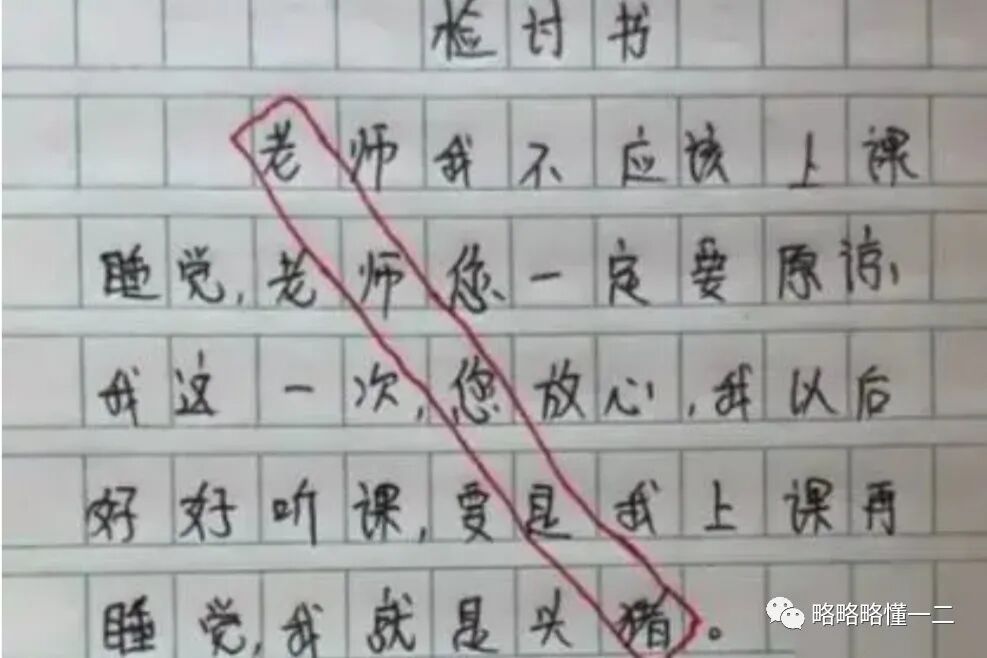 检讨书
老师我不应该上课
睡觉,老师您一定要原谅,
我这一次,您放心,我以后
好好听课,要是我上课再
睡觉,我就是头猪。
略略略懂一二